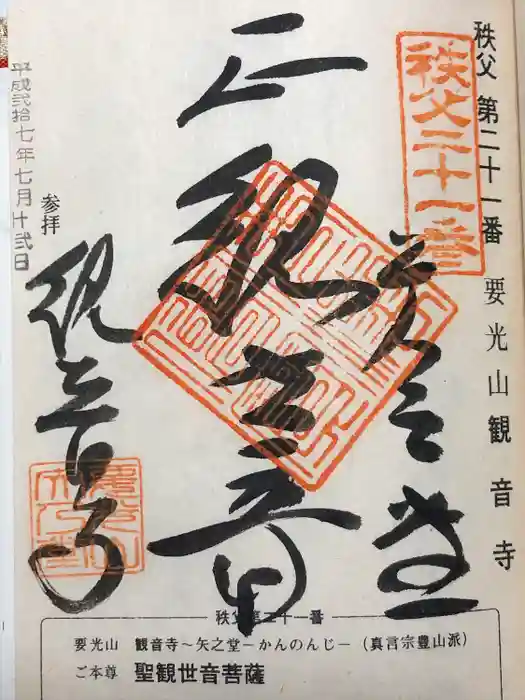 秩父 第二十一番 要光山観音寺
秩父二十一番
正観世音
観音寺
参拝
平成弐拾七年七月十弐日
秩父第二十一番
要光山 観音寺～矢之堂－かんのんじ－（真言宗豊山派）
ご本尊 聖観世音菩薩